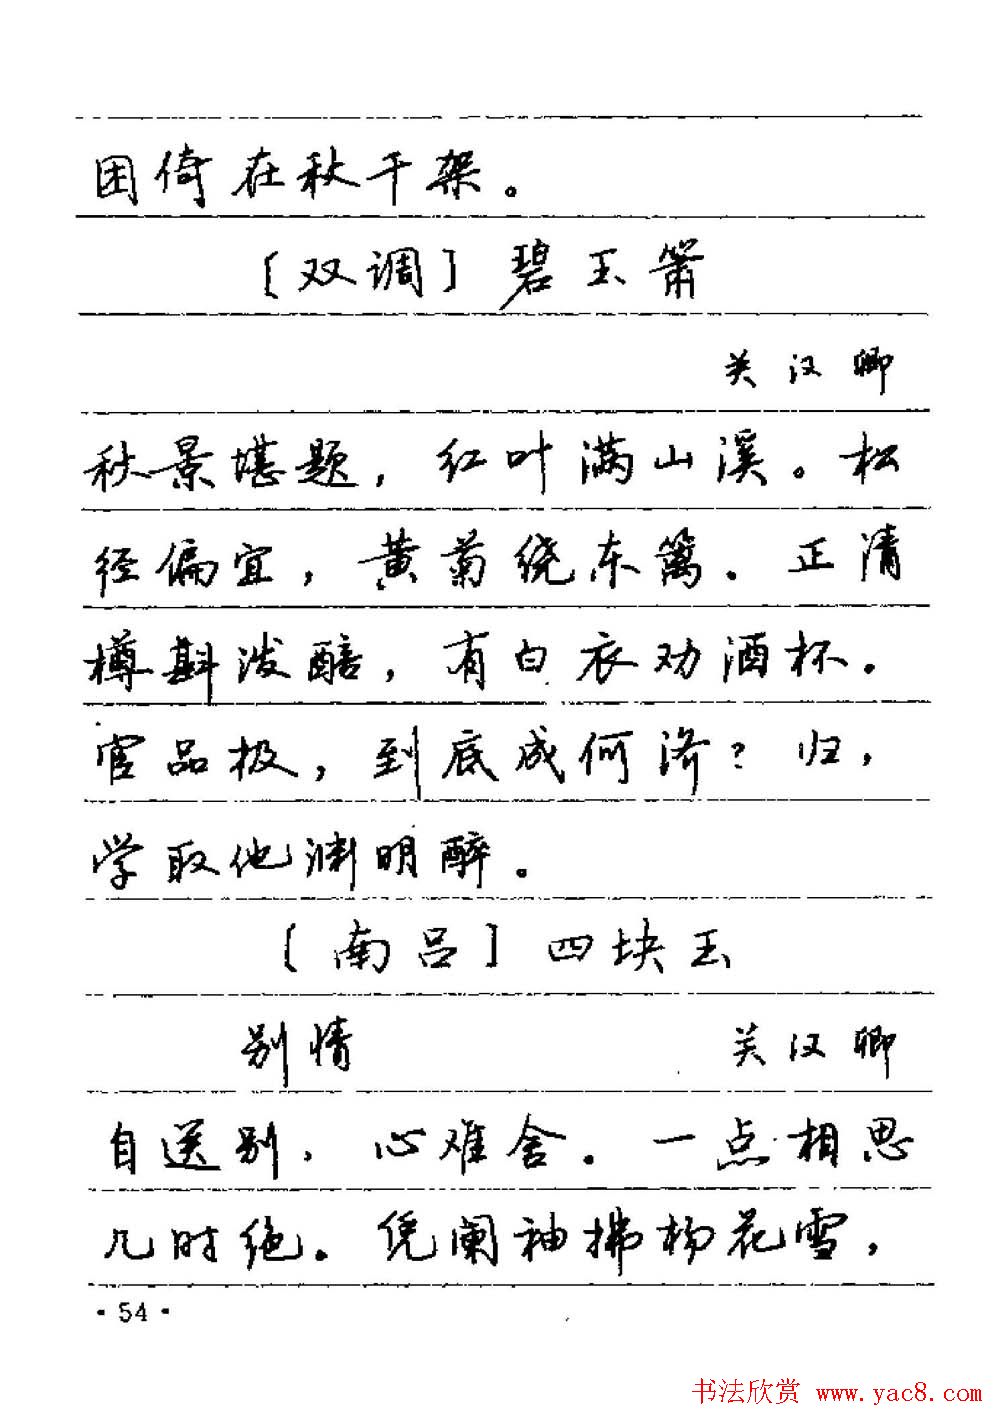 困倚在秋千架。
〔双调〕碧玉箫
关汉卿
秋景堪题，红叶满山溪。松
径偏宜，黄菊绕东篱。正清
樽斟泼醅，有白衣劝酒杯。
官品极，到底成何济？归，
学取他渊明醉。
〔南吕〕四块玉
别情 关汉卿
自送别，心难舍。一点相思
几时绝。凭阑袖拂杨花雪，
·54·
书法欣赏 www.yac8.com